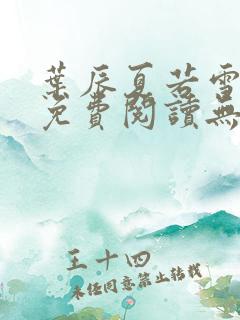 葉辰夏若雪
免費閱讀無
王十四
未經同意禁止轉載